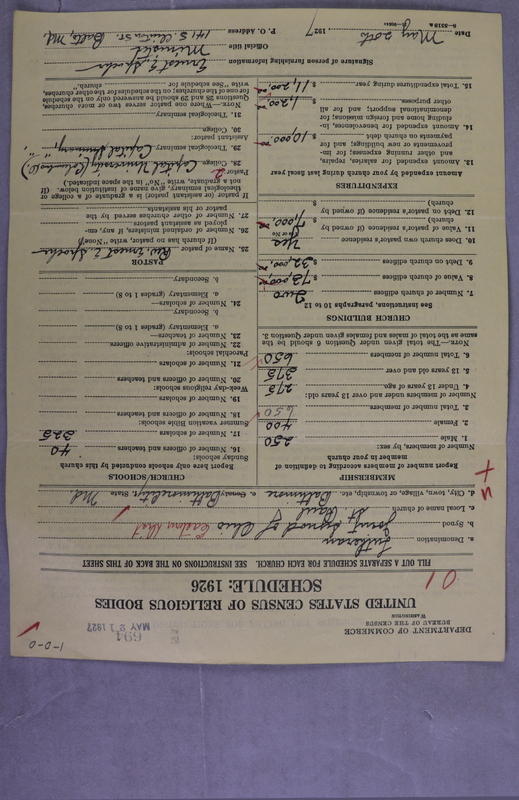 1-0-0
DEPARTMENT OF COMMERCE
BUREAU OF THE CENSUS
WASHINGTON
694
MAY 21 1927
UNITED STATES CENSUS OF RELIGIOUS BODIES
SCHEDULE: 1926
FILL OUT A SEPARATE SCHEDULE FOR EACH CHURCH. SEE INSTRUCTIONS ON THE BACK OF THIS SHEET
a. Denomination Lutheran
b. Synod Joint Synod of Ohio Eastern Dist
c. Local name of church St Paul
d. City, town, village, or township, etc. Baltimore e. County Baltimore City State Md.
MEMBERSHIP
Report number of members according to definition of member in your church
Number of members, by sex:
1. Male 250
2. Female 400
3. Total number of members 650
Number of members under and over 13 years old:
4. Under 13 years of age 275
5. 13 years old and over 375
6. Total number of members 650
NOTE.—The total given under Question 6 should be the same as the total of males and females given under Question 3.
CHURCH BUILDINGS
See instructions, paragraphs 10 to 12
7. Number of church edifices Two
8. Value of church edifices $
9. Debt on church edifices $ 32,000.00
10. Does church own pastor's residence Yes
(Yes or No)
11. Value of pastor's residence (if owned by church) $ 7,000.00
12. Debt on pastor's residence (if owned by church) $
EXPENDITURES
Amount expended by your church during last fiscal year
13. Amount expended for salaries, repairs, and other running expenses; for improvements or new buildings; and for payments on church debt $ 10,000.00
14. Amount expended for benevolences, including home and foreign missions; for denominational support; and for all other purposes $ 1,200.00
15. Total expenditures during year $ 11,200.00
CHURCH SCHOOLS
Report here only schools conducted by this church
Sunday school:
16. Number of officers and teachers 40
17. Number of scholars 325
Summer vacation Bible schools:
18. Number of officers and teachers
19. Number of scholars
Week-day religious schools:
20. Number of officers and teachers
21. Number of scholars
Parochial schools:
22. Number of administrative officers
23. Number of teachers
a. Elementary (grades 1 to 8)
b. Secondary
24. Number of scholars
a. Elementary (grades 1 to 8)
b. Secondary
PASTOR
25. Name of pastor Rev. Ernest E.
(If church has no pastor, write "None")
26. Number of ordained ministers, if any, employed as assistant pastors
27. Number of other churches served by the pastor or his assistants
If pastor (or assistant pastor) is a graduate of a college or theological seminary, give name of institution below. (If not a graduate, write "No" in the space indicated.)
Pastor:
28. College Capital University (Columbus O)
29. Theological seminary Capital Seminary, " "
Assistant pastor:
30. College
31. Theological seminary
NOTE.—Where one pastor serves two or more churches, Questions 28 and 29 should be answered only on the schedule for one of the churches; on the schedules for the other churches, write "See schedule for church."
Signature of person furnishing information Ernest E.
Official title Minister
Date May 20th 1927 P. O. Address 141 S. Clinton St. Balto, Md.